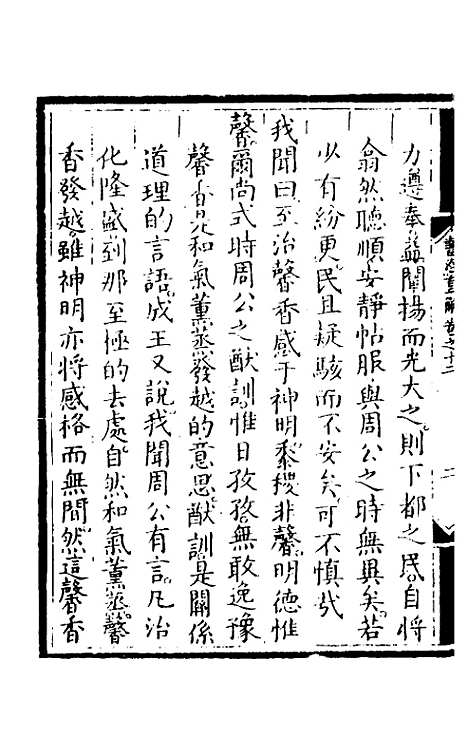 力遵奉益闡揚而光大之則下都之民自將
翕然聽順安靜帖服與周公之時無異矣若
少有紛更民且疑駭而不安矣可不慎哉
我聞曰至治馨香感于神明黍稷非馨明德惟
馨爾尚式時周公之猷訓惟日孜孜無敢逸豫
馨香是和氣薰蒸發越的意思猷訓是關係
道理的言語成王又說我聞周公有言凡治
化隆盛到那至極的去處自然和氣薰蒸馨
香發越雖神明亦將感格而無間然這馨香